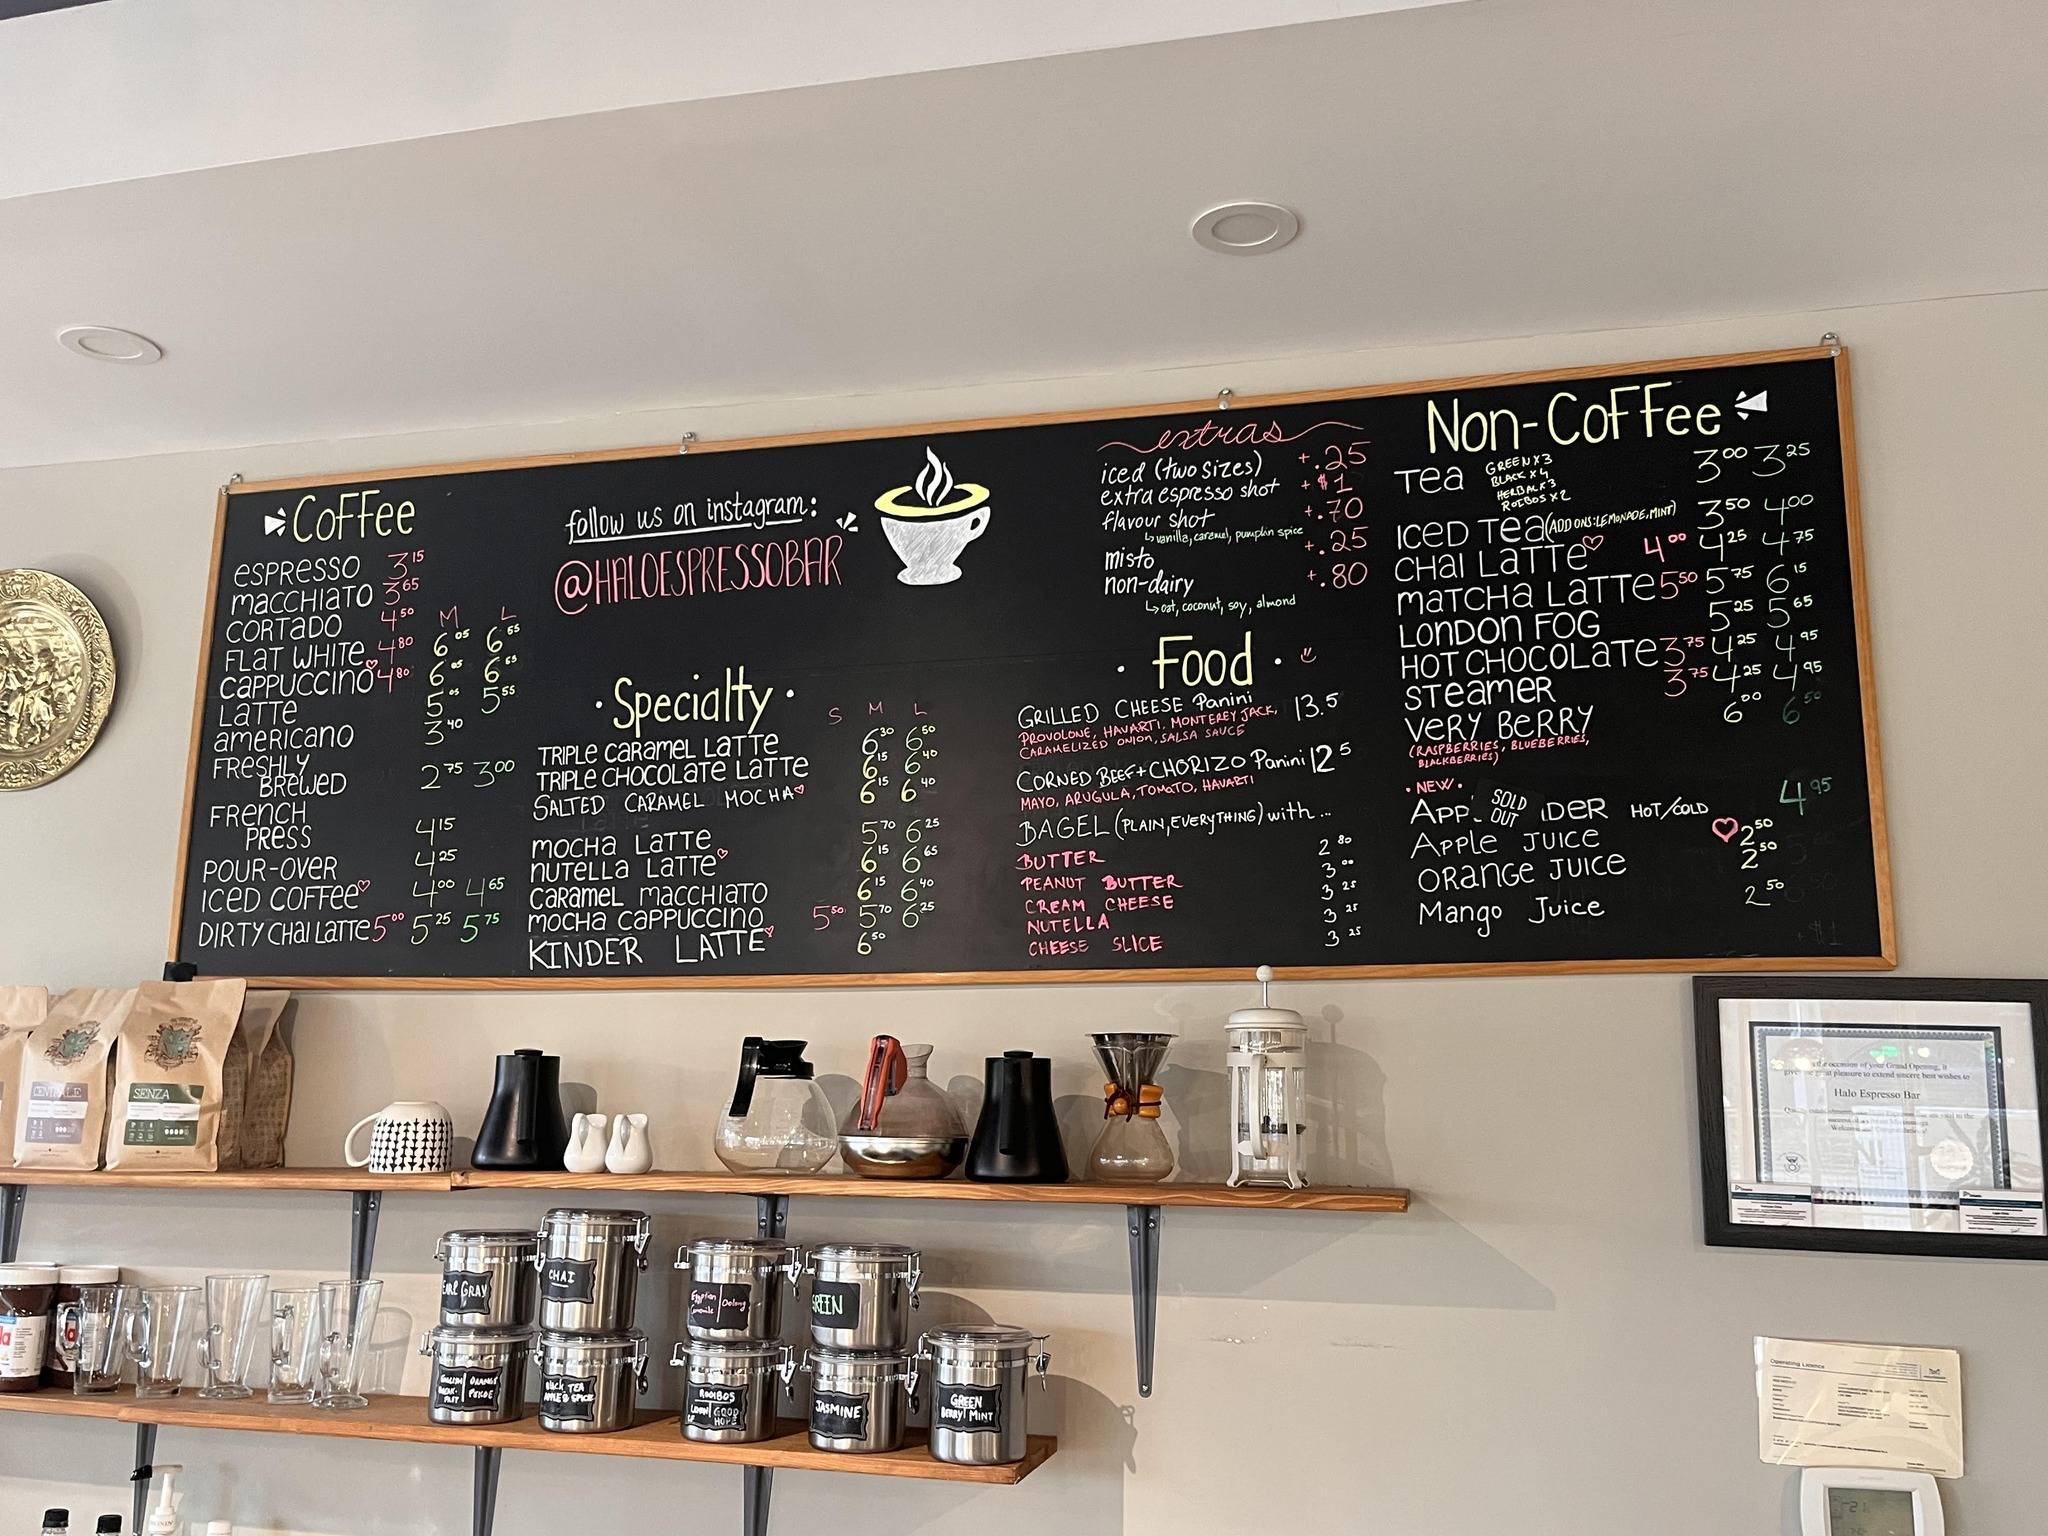 Coffee
espresso 3 15
macchiato 3 65
cortado 4 50 M L
FLAT WHITE 4 80 6 05 6 55
cappuccino 4 80 6 05 6 55
Latte 5 05 5 55
americano 3 40
FRESHLY
BREWED 2 75 3 00
FRENCH
PRESS 4 15
POUR-OVER 4 25
ICED COFFEE 4 00 4 65
DIRTY CHAI LATTE 5 00 5 25 5 75
follow us on instagram:
@HALOESPRESSOBAR
· Specialty ·
S M L
TRIPLE CARAMEL LATTE 6 30 6 50
TRIPLE CHOCOLATE LATTE 6 15 6 40
SALTED CARAMEL MOCHA 6 15 6 40
MOCHA LATTE 5 70 6 25
NUTELLA LATTE 6 15 6 65
CARAMEL MACCHIATO 6 15 6 40
MOCHA CAPPUCCINO 5 50 5 70 6 25
KINDER LATTE 6 50
extras
iced (two sizes) +.25
extra espresso shot +$1
flavour shot +.70
vanilla, caramel, pumpkin spice
misto +.25
non-dairy +.80
oat, coconut, soy, almond
· Food ·
GRILLED CHEESE Panini 13.5
PROVOLONE, HAVARTI, MONTEREY JACK,
CARAMELIZED ONION, SALSA SAUCE
CORNED BEEF + CHORIZO Panini 12 5
MAYO, ARUGULA, TOMATO, HAVARTI
BAGEL (PLAIN, EVERYTHING) with ...
BUTTER 2 80
PEANUT BUTTER 3 00
CREAM CHEESE 3 25
NUTELLA 3 25
CHEESE SLICE 3 25
Non-Coffee
Tea 3 00 3 25
GREEN x 3
BLACK x 4
HERBAL x 3
ROOIBOS x 2
ICED TEA (ADD ONS: LEMONADE, MINT) 3 50 4 00
CHAI LATTE 4 00 4 25 4 75
MATCHA LATTE 5 50 5 75 6 15
LONDON FOG 5 25 5 65
HOT CHOCOLATE 3 75 4 25 4 95
STEAMER 3 75 4 25 4 95
VERY BERRY 6 00 6 50
(RASPBERRIES, BLUEBERRIES,
BLACKBERRIES)
· NEW ·
SOLD
OUT
APP IDER HOT/COLD 4 95
APPLE JUICE 2 50
ORANGE JUICE 2 50
Mango Juice 2 50
+ $1
SENZA
Halo Espresso Bar
EARL GRAY
CHAI
Egyptian Oolong
GREEN
ENGLISH ORANGE
BREAK- PEKOE
FAST
BLACK TEA
APPLE & SPICE
ROOIBOS
LEMON GOOD
HOPE
JASMINE
GREEN
BERRY MINT
Operating Licence